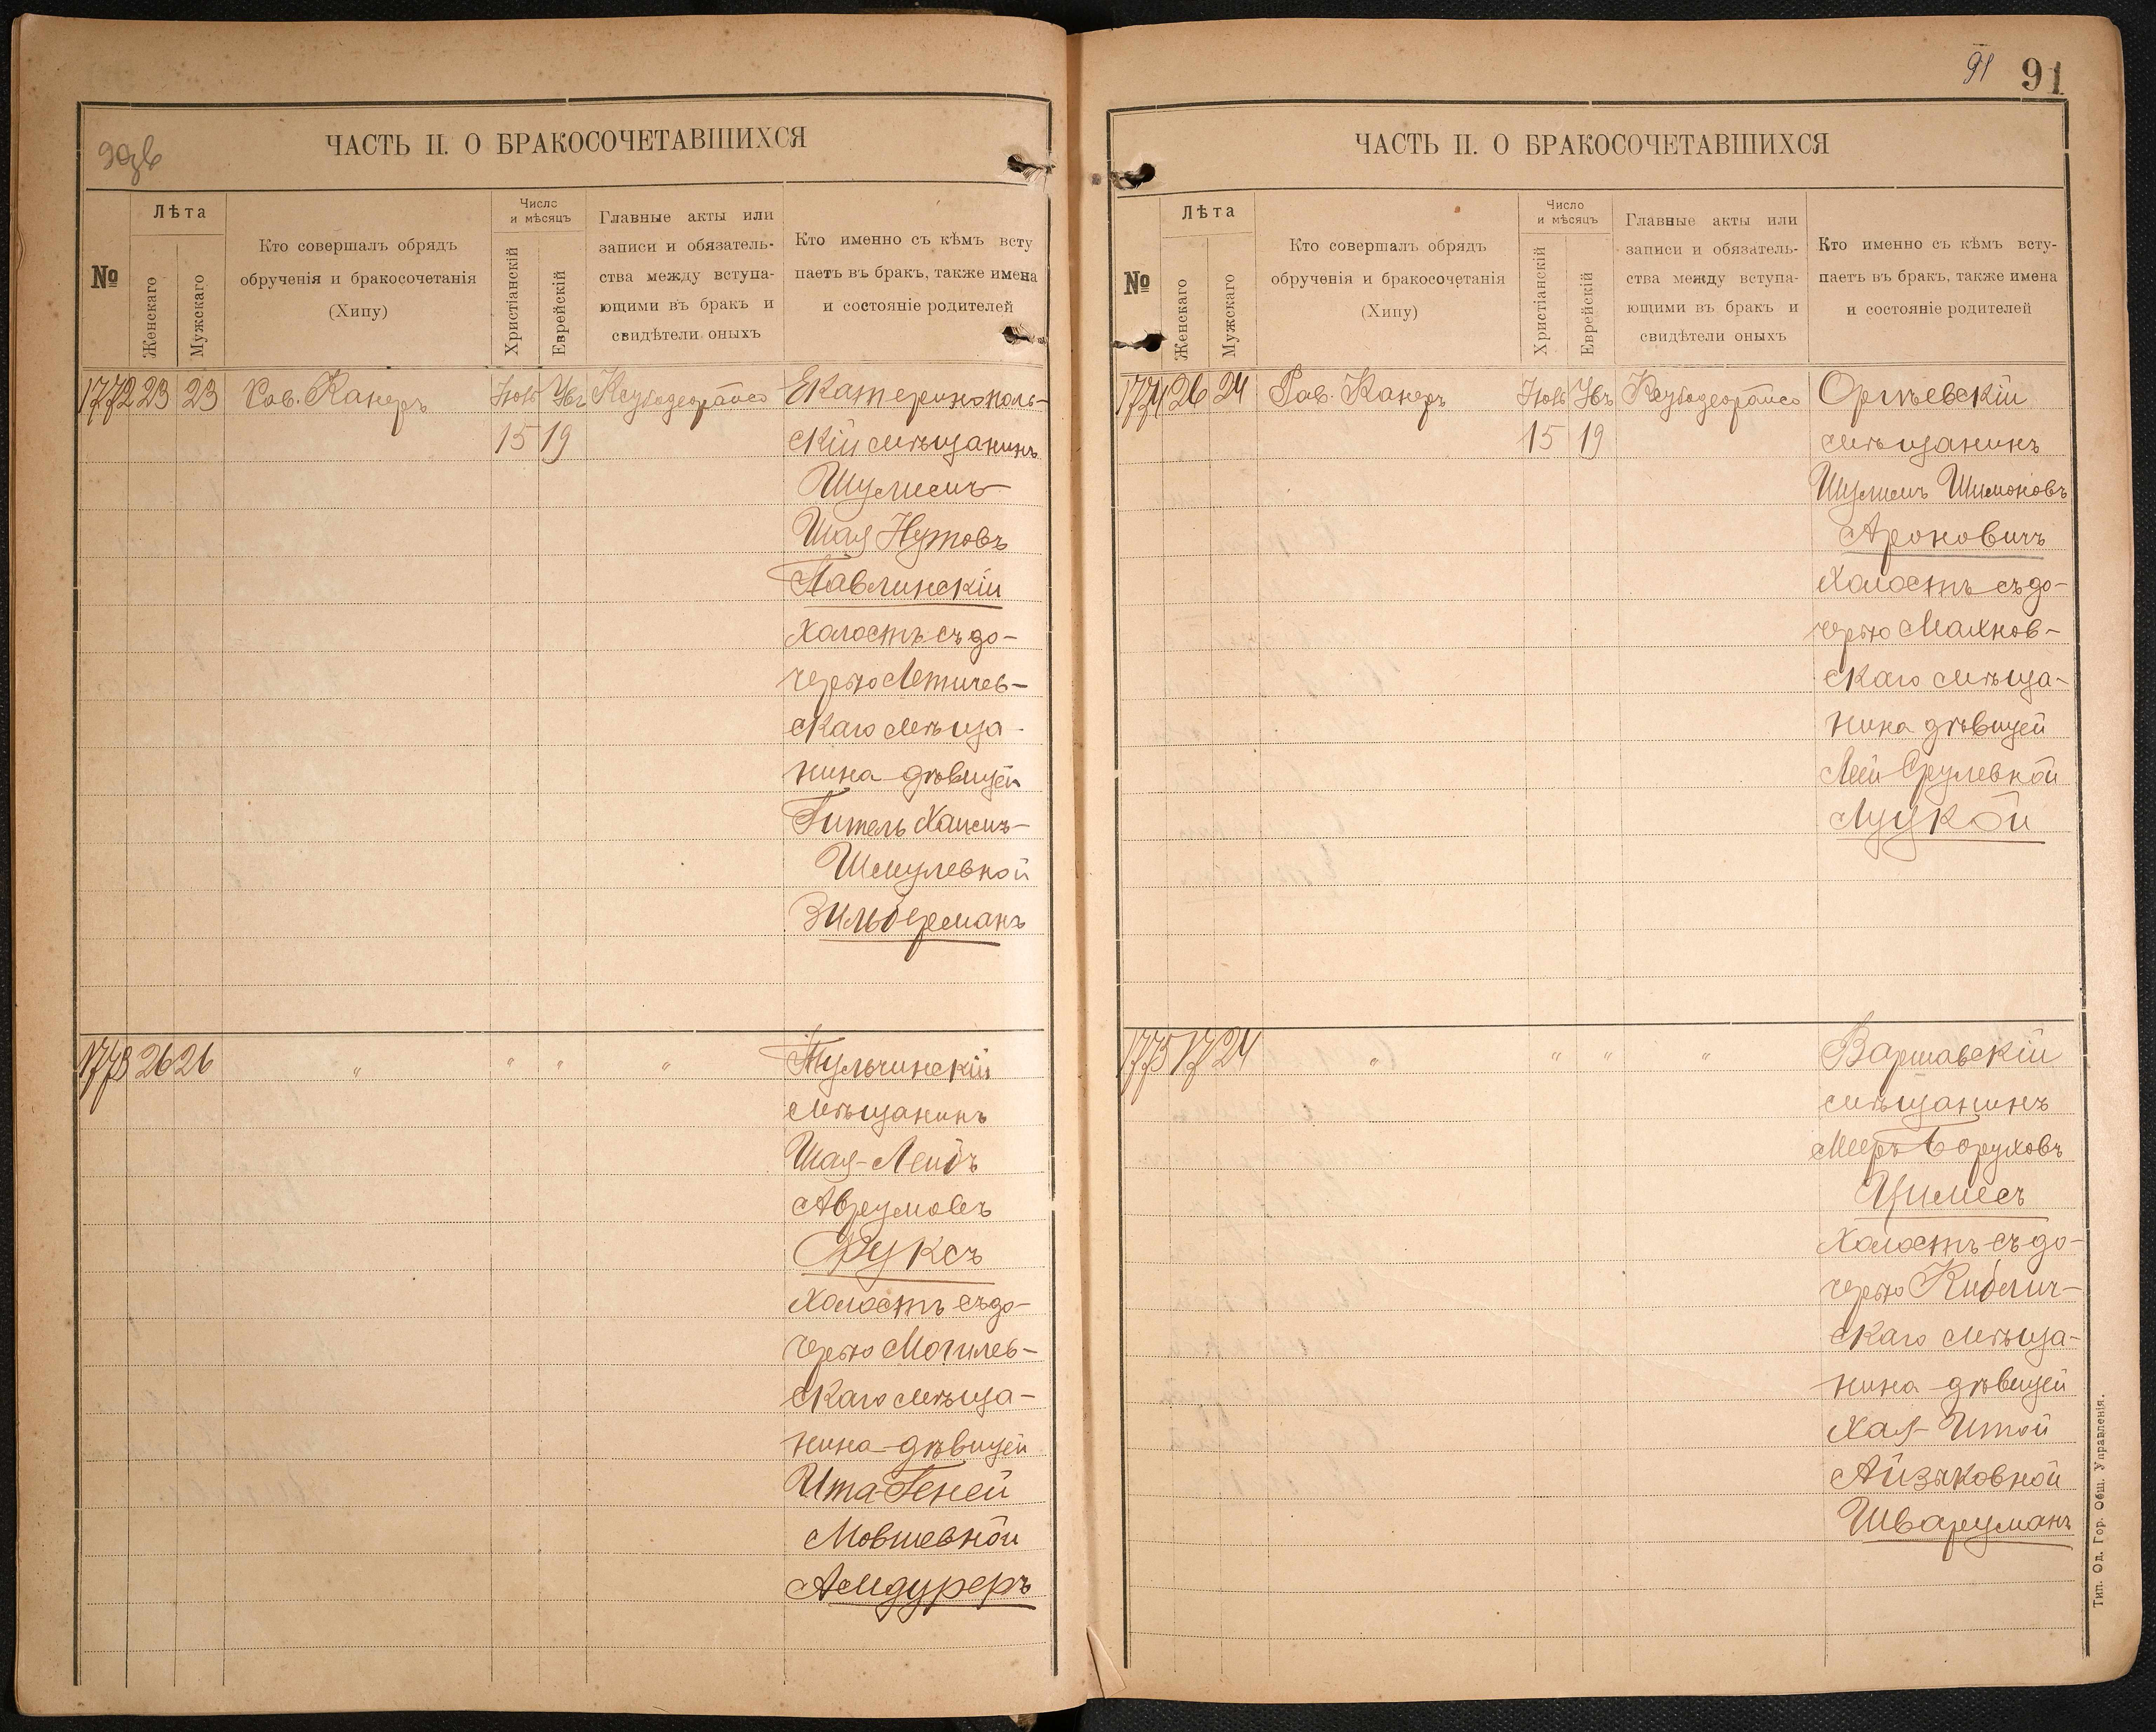 ЧАСТЬ II. О БРАКОСОЧЕТАВШИХСЯ
№
Лѣта
Женскаго
Мужскаго
Кто совершалъ обрядъ
обрученія и бракосочетанія
(Хипу)
Число
и мѣсяцъ
Христіанскій
Еврейскій
Главные акты или
записи и обязатель-
ства между вступа-
ющими въ бракъ и
свидѣтели оныхъ
Кто именно съ кѣмъ всту
паетъ въ бракъ, также имена
и состояніе родителей
1772 23 23 Рав. Канеръ
15 19
Екатеринополь-
скій мѣщанинъ
Шулимъ
Шая Нутовъ
Павлинскій
холостъ съ до-
черью Летичев-
скаго мѣща-
нина дѣвицей
Гитель Хаимъ-
Шмулевной
Зильберманъ
1773 26 26 " " " "
Тульчинскій
мѣщанинъ
Шая-Лейбъ
Аврумовъ
Фуксъ
холостъ съ до-
черью Могилев-
скаго мѣща-
нина дѣвицей
Ита-Геней
Мовшевной
Амдуреръ
91 91
ЧАСТЬ II. О БРАКОСОЧЕТАВШИХСЯ
№
Лѣта
Женскаго
Мужскаго
Кто совершалъ обрядъ
обрученія и бракосочетанія
(Хипу)
Число
и мѣсяцъ
Христіанскій
Еврейскій
Главные акты или
записи и обязатель-
ства между вступа-
ющими въ бракъ и
свидѣтели оныхъ
Кто именно съ кѣмъ всту-
паетъ въ бракъ, также имена
и состояніе родителей
1774 26 24 Рав. Канеръ
15 19
Оргѣевскій
мѣщанинъ
Шулимъ Шимоновъ
Ароновичъ
холостъ съ до-
черью Махнов-
скаго мѣща-
нина дѣвицей
Леей Срулевной
Луцкой
1775 17 24 " " " "
Варшавскій
мѣщанинъ
Мееръ Боруховъ
Цимесъ
холостъ съ до-
черью Кублич-
скаго мѣща-
нина дѣвицей
Хая-Итой
Айзиковной
Шварцманъ
Тип. Од. Гор. Общ. Управленія.